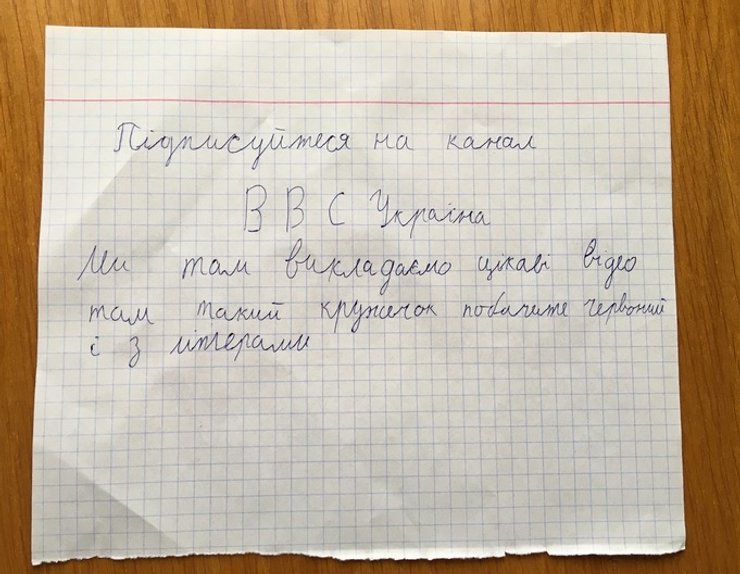 Підписуйтеся на канал
В В С Україна
Ми там викладаємо цікаві відео
там такий кружечок побачите червоний
і з літерами